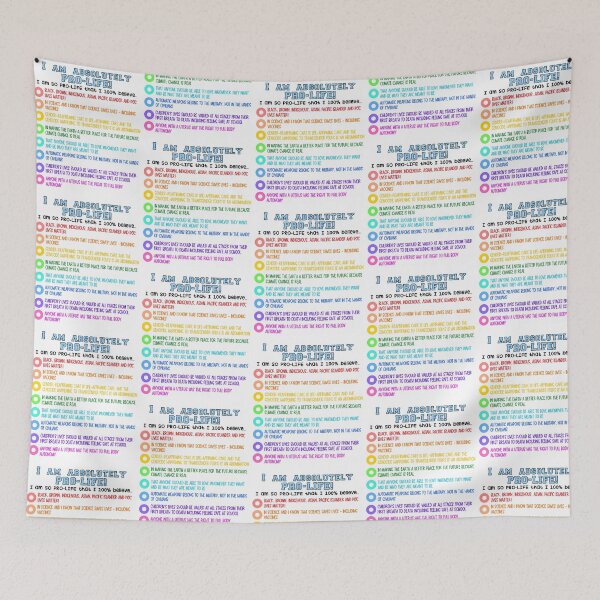 I AM ABSOLUTELY
PRO-LIFE!
I am so PRO-LIFE that I 100% believe..
BLACK, BROWN, INDIGENOUS, ASIAN, PACIFIC ISLANDER AND POC
LIVES MATTER!
IN SCIENCE AND I KNOW THAT SCIENCE SAVES LIVES - INCLUDING
VACCINES
GENDER-AFFIRMING CARE IS LIFE-AFFIRMING CARE AND THE
GENOCIDE HAPPENING TO TRANSGENDER YOUTH IS AN ABOMINATION
IN MAKING THE EARTH A BETTER PLACE FOR THE FUTURE BECAUSE
CLIMATE CHANGE IS REAL
THAT ANYONE SHOULD BE ABLE TO LOVE WHOMEVER THEY WANT
AND BE WHO THEY ARE MEANT TO BE
AUTOMATIC WEAPONS BELONG TO THE MILITARY, NOT IN THE HANDS
OF CIVILIANS
CHILDREN'S LIVES SHOULD BE VALUED AT ALL STAGES FROM THEIR
FIRST BREATH TO DEATH INCLUDING FEELING SAFE AT SCHOOL
ANYONE WITH A UTERUS HAS THE RIGHT TO FULL BODY
AUTONOMY